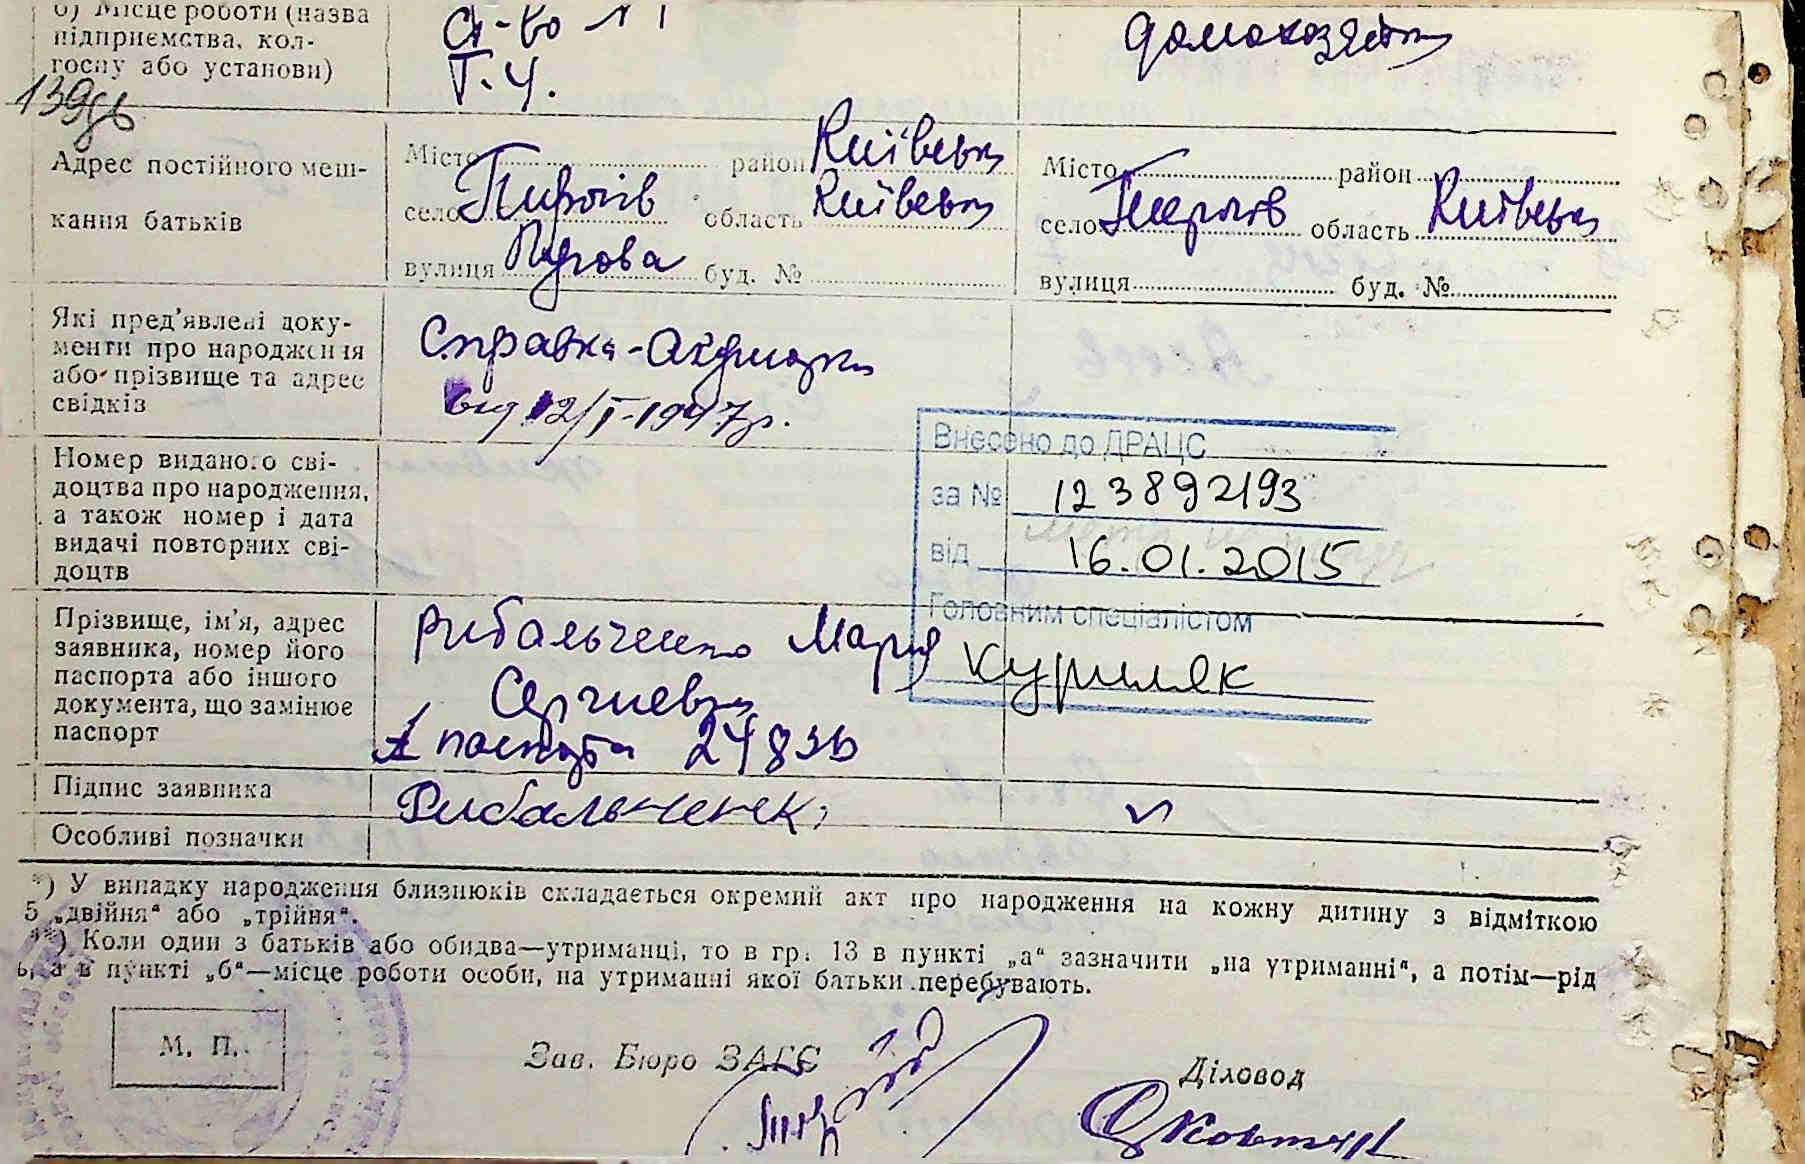 б) Місце роботи (назва
підприємства, кол-
госпу або установи)
Ст-во №1
Т. Ч.
домохозяйка
139
Адрес постійного меш-
кання батьків
Місто район Київськ
село Пирогів область Київськ
вулиця Пугова буд. №
Місто район
село Пирогів область Київськ
вулиця буд. №
Які пред'явлені доку-
менти про народження
або прізвище та адрес
свідків
Справка-Акушорки
від 12/I-1947р.
Номер виданого сві-
доцтва про народження,
а також номер і дата
видачі повторних сві-
доцтв
Внесено до ДРАЦС
за № 123892193
від 16.01.2015
Головним спеціалістом
Куриляк
Прізвище, ім'я, адрес
заявника, номер його
паспорта або іншого
документа, що замінює
паспорт
Рибальченко Мария
Сергиевна
паспорта
Підпис заявника
Рибальченк
Особливі позначки
*) У випадку народження близнюків складається окремий акт про народження на кожну дитину з відміткою
5 „двійня“ або „трійня“.
**) Коли один з батьків або обидва—утриманці, то в гр. 13 в пункті „а“ зазначити „на утриманні“, а потім—рід
а в пункті „б“—місце роботи особи, на утриманні якої батьки перебувають.
М. П.
Зав. Бюро ЗАГС
Діловод